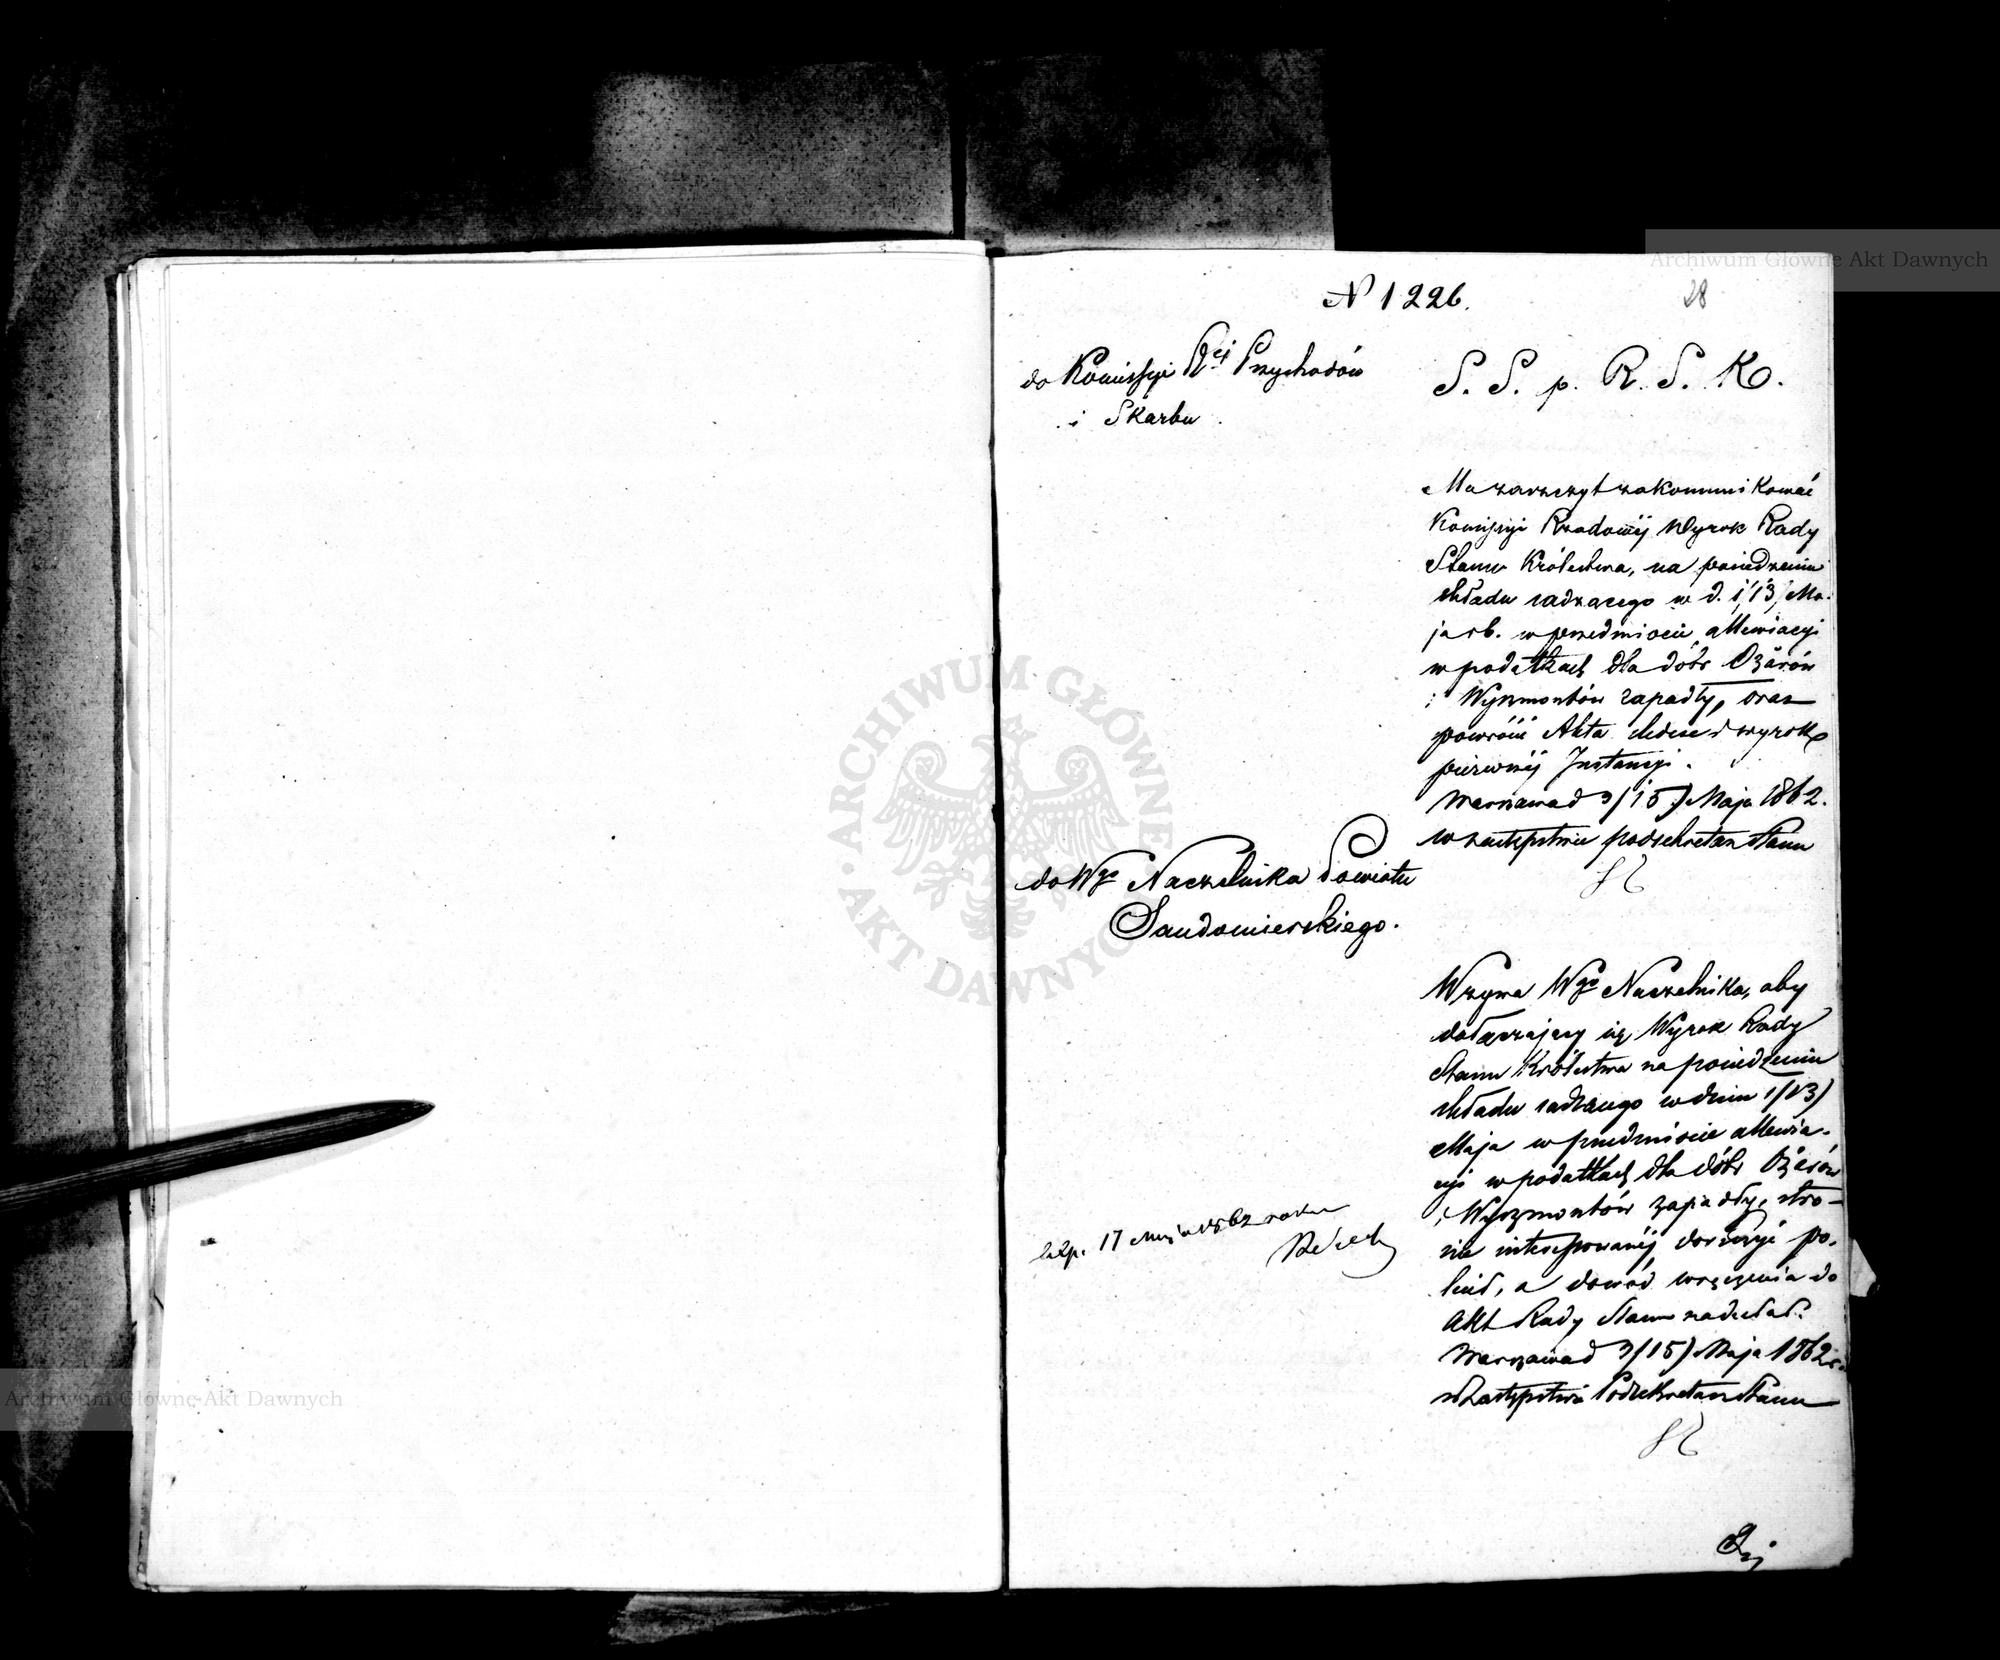 N 1226.
28
do Komissyi Rej Przychodów
i Skarbu.
S. S. p. R. S. K.
Ma zaszczyt zakommunikować
Komissyi Rządowéj Wyrok Rady
Stanu Królestwa, na posiedzeniu
składu sądzącego w d. 1/13/ Ma-
ja rb. w przedmiocie allewiacyi
w podatkach dla dóbr Ożarów
i Wyszmontów zapadły, oraz
powrócić Akta i wyrok
pierwszéj Instancyi.
Warszawa d 3/15/ Maja 1862.
w zastępstwie podsekretarz Stanu
do Wgo Naczelnika Powiatu
Sandomierskiego.
Wzywa Wgo Naczelnika, aby
dołączający się Wyrok Rady
Stanu Królestwa na posiedzeniu
składu sądzącego w dniu 1/13/
Maja w przedmiocie allewia-
cyi w podatkach dla dóbr Ożarów
i Wyszmontów zapadły, stro-
nie interesowanéj doręczyć po-
lecił, a dowód wręczenia do
Akt Rady Stanu nadesłał.
Warszawa d 3/15/ Maja 1862 r.
w Zastępstwie Podsekretarz Stanu
17 Maja 1862 roku
Archiwum Główne Akt Dawnych
ARCHIWUM GŁÓWNE AKT DAWNYCH
Archiwum Główne Akt Dawnych